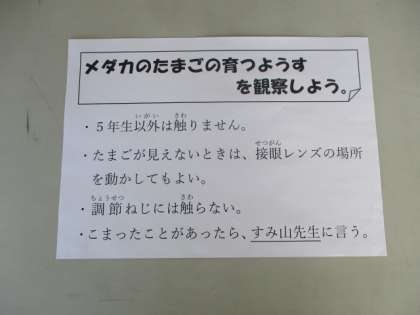 メダカのたまごの育つようす
を観察しよう。
・５年生以外は触りません。
・たまごが見えないときは、接眼レンズの場所
を動かしてもよい。
・調節ねじには触らない。
・こまったことがあったら、すみ山先生に言う。